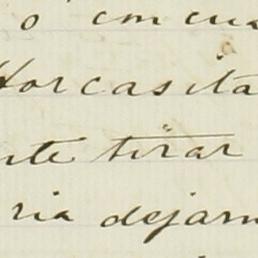 o cincue
Horcasita
nte tirar
ria dejarm